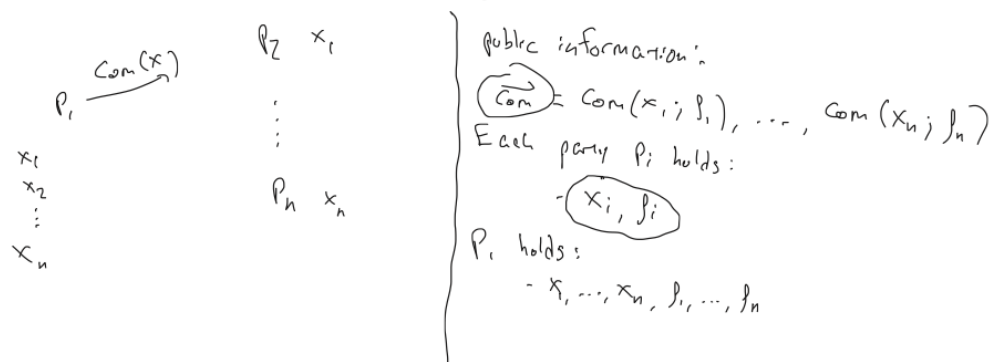 P₂ x₁
Com(x)
P₁
⋮
x₁
x₂
⋮
xₙ
Pₙ xₙ
public information:
Com = Com(x₁; ρ₁), ..., Com(xₙ; ρₙ)
Each party Pᵢ holds:
- xᵢ, ρᵢ
P₁ holds:
- x₁, ..., xₙ, ρ₁, ..., ρₙ